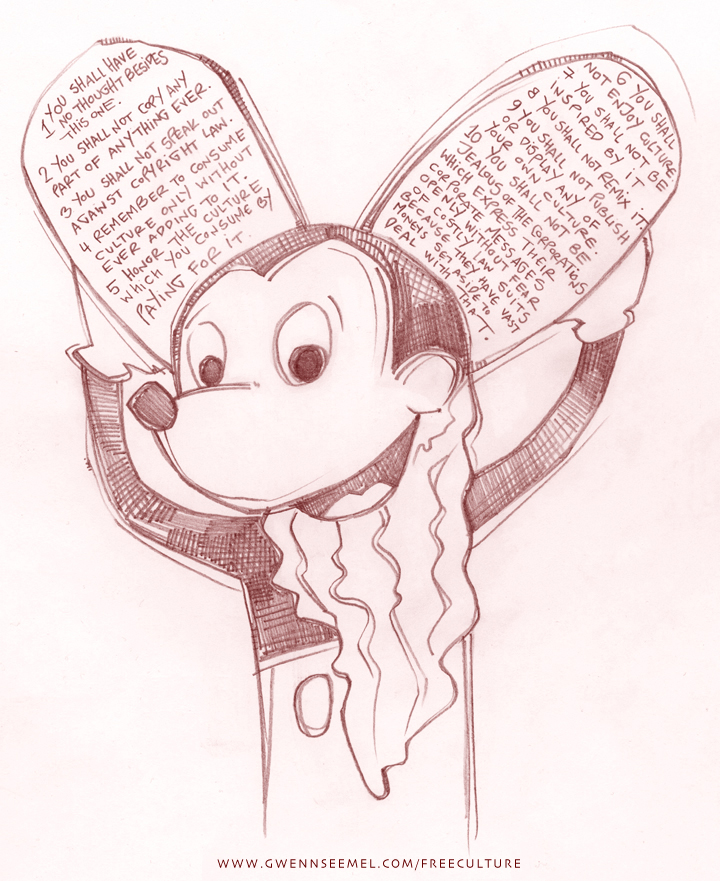 1 YOU SHALL HAVE
NO THOUGHT BESIDES
THIS ONE.
2 YOU SHALL NOT COPY ANY
PART OF ANYTHING EVER.
3 YOU SHALL NOT SPEAK OUT
AGAINST COPYRIGHT LAW.
4 REMEMBER TO CONSUME
CULTURE ONLY WITHOUT
EVER ADDING TO IT.
5 HONOR THE CULTURE
WHICH YOU CONSUME BY
PAYING FOR IT.
6 YOU SHALL
NOT ENJOY CULTURE
7 YOU SHALL NOT BE
INSPIRED BY IT
8 YOU SHALL NOT REMIX IT.
9 YOU SHALL NOT PUBLISH
OR DISPLAY ANY OF
YOUR OWN CULTURE.
10 YOU SHALL NOT BE
JEALOUS OF THE CORPORATIONS
WHICH EXPRESS THEIR
CORPORATE MESSAGES
OPENLY WITHOUT FEAR
OF COSTLY LAW SUITS
BECAUSE THEY HAVE VAST
MONEYS SET ASIDE TO
DEAL WITH THAT.
WWW.GWENNSEEMEL.COM/FREECULTURE